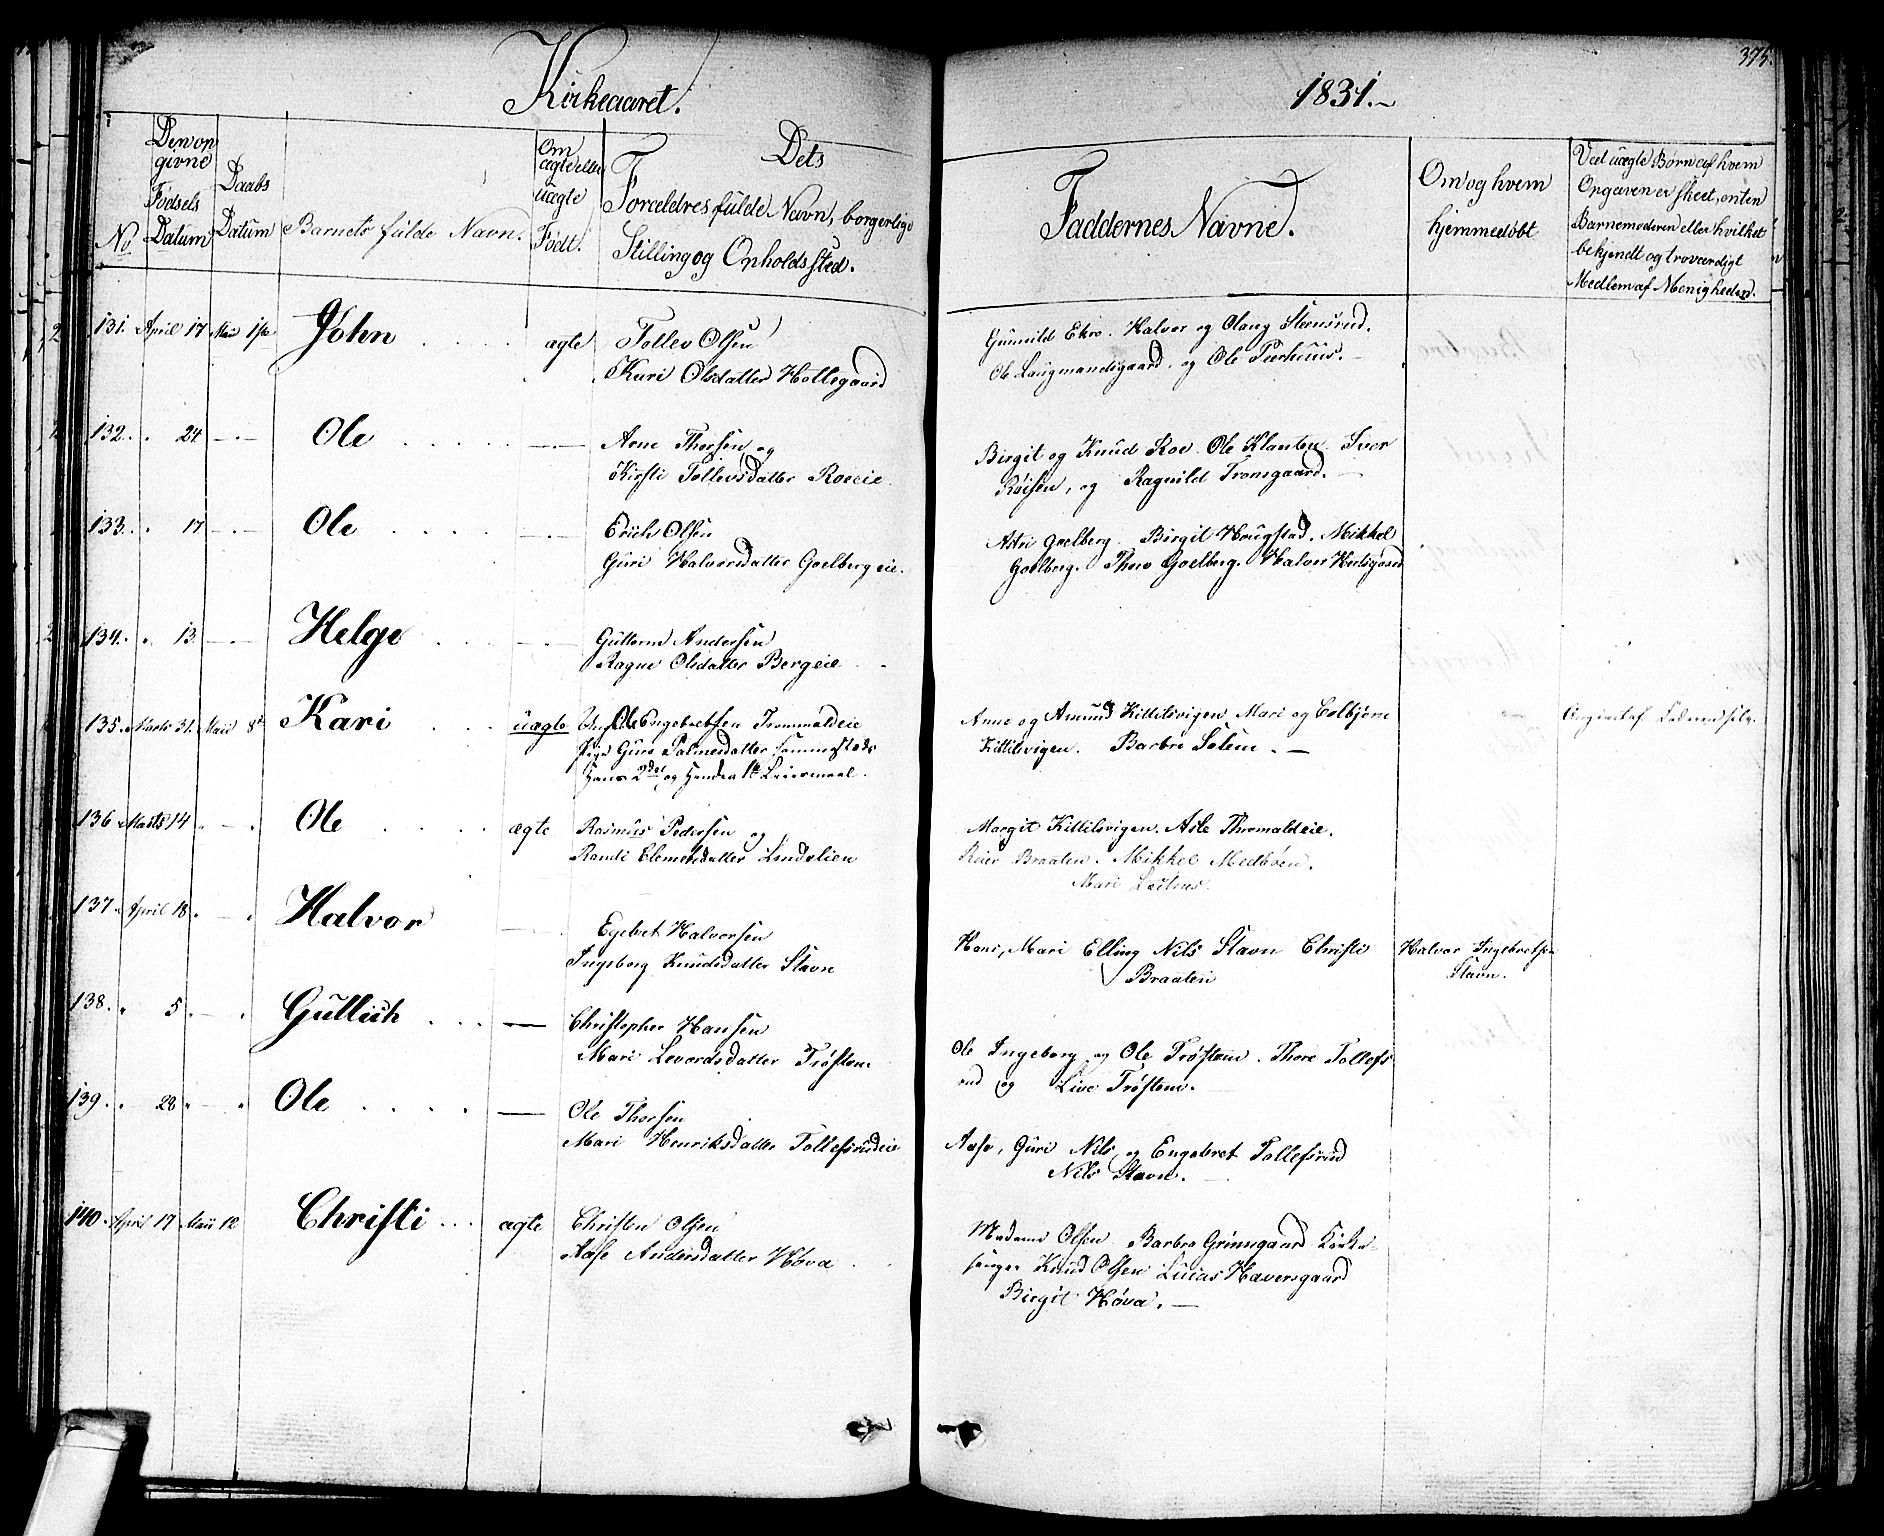 Kirkeaaret.
1831.
375.
No
Den op
givne
Fødsels
Datum
Daabs
Datum
Barnets fulde Navn.
Om
ægte eller
uægte
Født.
Dets
Forældres fulde Navn, borgerlige
Stilling og Opholdssted.
Faddernes Navne.
Om og hvem
hjemmedøbt
Ved uægte Børn af hvem
Opgaven er skeet, enten
Barnemoderen eller hvilket
bekjendt og troværdigt
Medlem af Menigheden.
131. April 17 Maii 1ste John ægte Tollev Olsen
Kari Olsdatter Hollsgaard
Gunnild Ekro. Halvor og Olaug Steensrud.
Ole Laugmandsgaard, og Ole Peerhuus.
132. " 24 Ole Arne Thorsen og
Kirsti Tollevsdatter Roeeie
Birgit og Knud Roe. Ole Klanten. Iver
Roisen, og Ragnild Tronsgaard.
133. " 17 Ole Erich Olsen
Guri Halvorsdatter Goelberg eie.
Astri Goelberg. Birgit Hougstad. Mikkel
Goelberg. Thoro Goelberg. Halvor
134. " 13 Helge Guttorm Andersen
Ragne Olsdatter Bergeie
135. Marts 31. Maii 8de Kari uægte Ole Engebretsen Trommaldeie
Pige Guro Palmesdatter sammesteds
Hans 2det og Hendes 1ste Leiermaal.
Anne og Amund Kittilsvigen, Mari og Colbjørn
Kittilsvigen. Barbro Solem.
Angivet af Faderen selv.
136 Marts 14 Ole ægte Rasmus Pedersen og
Randi Clemetsdatter Lindelien
Margit Kittilsvigen. Asle Thromaldeie.
Reier Braaten. Mikkel Medboen.
Mari
137. April 18 Halvor Egebret Halvorsen
Ingeborg Knudsdatter Stavn
Hans, Mari Elling Nils Stavn Christi
Braaten
Halvor Ingebretsen
Stavn.
138. " 5 Gullich Christopher Hansen
Mari Levordsdatter Trøstem
Ole Ingeborg og Ole Trøstem. Thore Tollefs
rud og Live Trøstem.
139. " 28 Ole Ole Thorsen
Mari Henriksdatter Tollefsrudeie
Aase, Guri Nils, og Engebret Tollefsrud
Nils Stavn.
140. April 17 Maii 12 Christi ægte Christen Olsen
Aase Andersdatter Høva
Madame Olsen Barbro Grimsgaard Kirke-
sanger Knud Olsen Lucas Haversgaard
Birgit Høva.